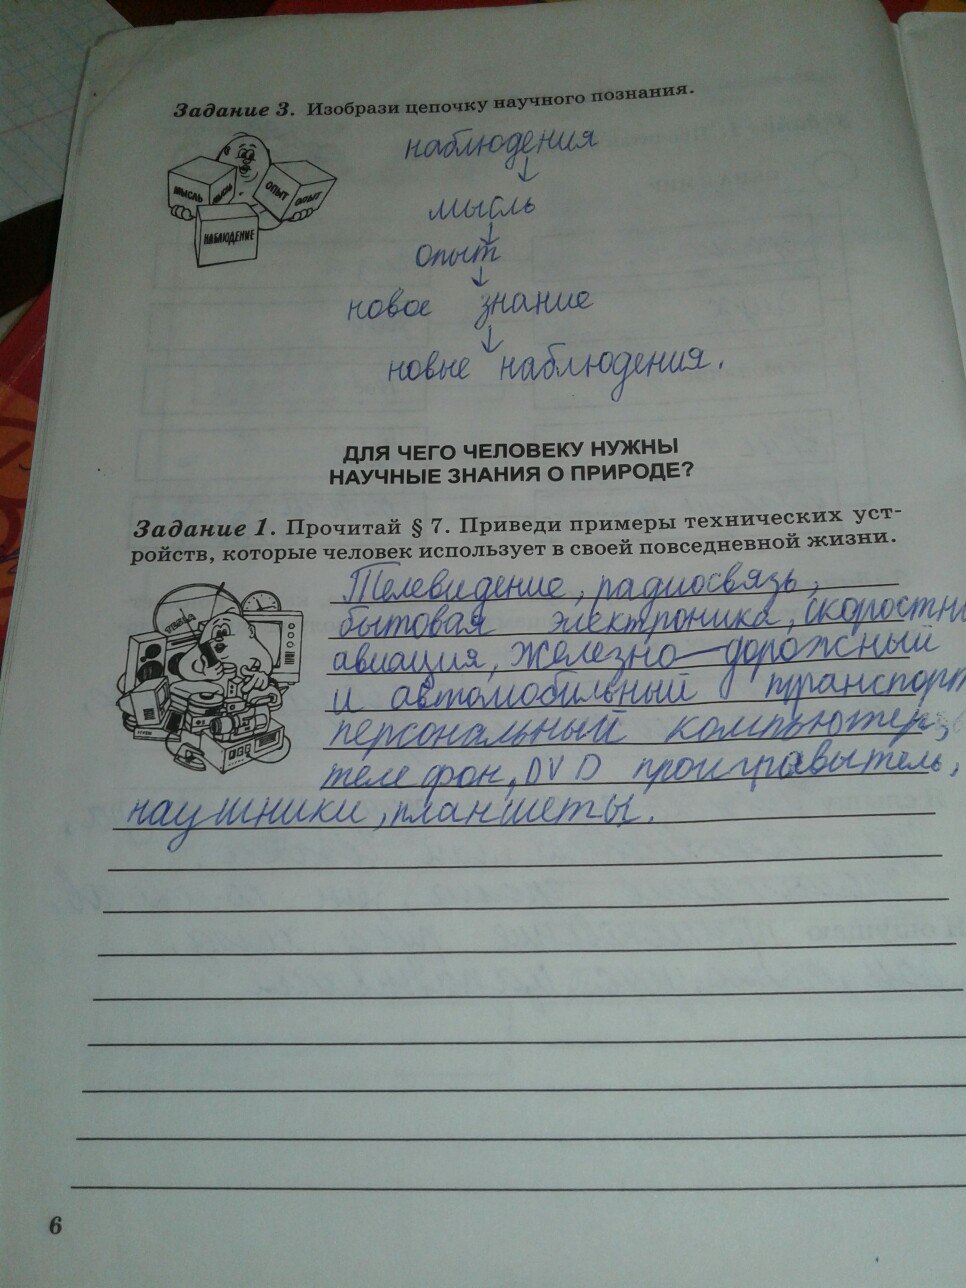 Задание 3. Изобрази цепочку научного познания.
наблюдения
↓
мысль
↓
опыт
↓
новое знание
↓
новые наблюдения.
МЫСЛЬ
ОПЫТ ОПЫТ
НАБЛЮДЕНИЕ
ДЛЯ ЧЕГО ЧЕЛОВЕКУ НУЖНЫ
НАУЧНЫЕ ЗНАНИЯ О ПРИРОДЕ?
Задание 1. Прочитай § 7. Приведи примеры технических уст-
ройств, которые человек использует в своей повседневной жизни.
Телевидение, радиосвязь,
бытовая электроника, скоростн
авиация, железно-дорожный
и автомобильный транспорт
персональный компьютер,
телефон, DVD проигрыватель,
наушники, планшеты.
6